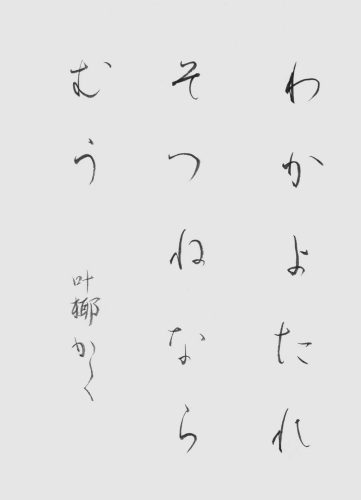 わかよたれ
そつねなら
むう
叶椰かく